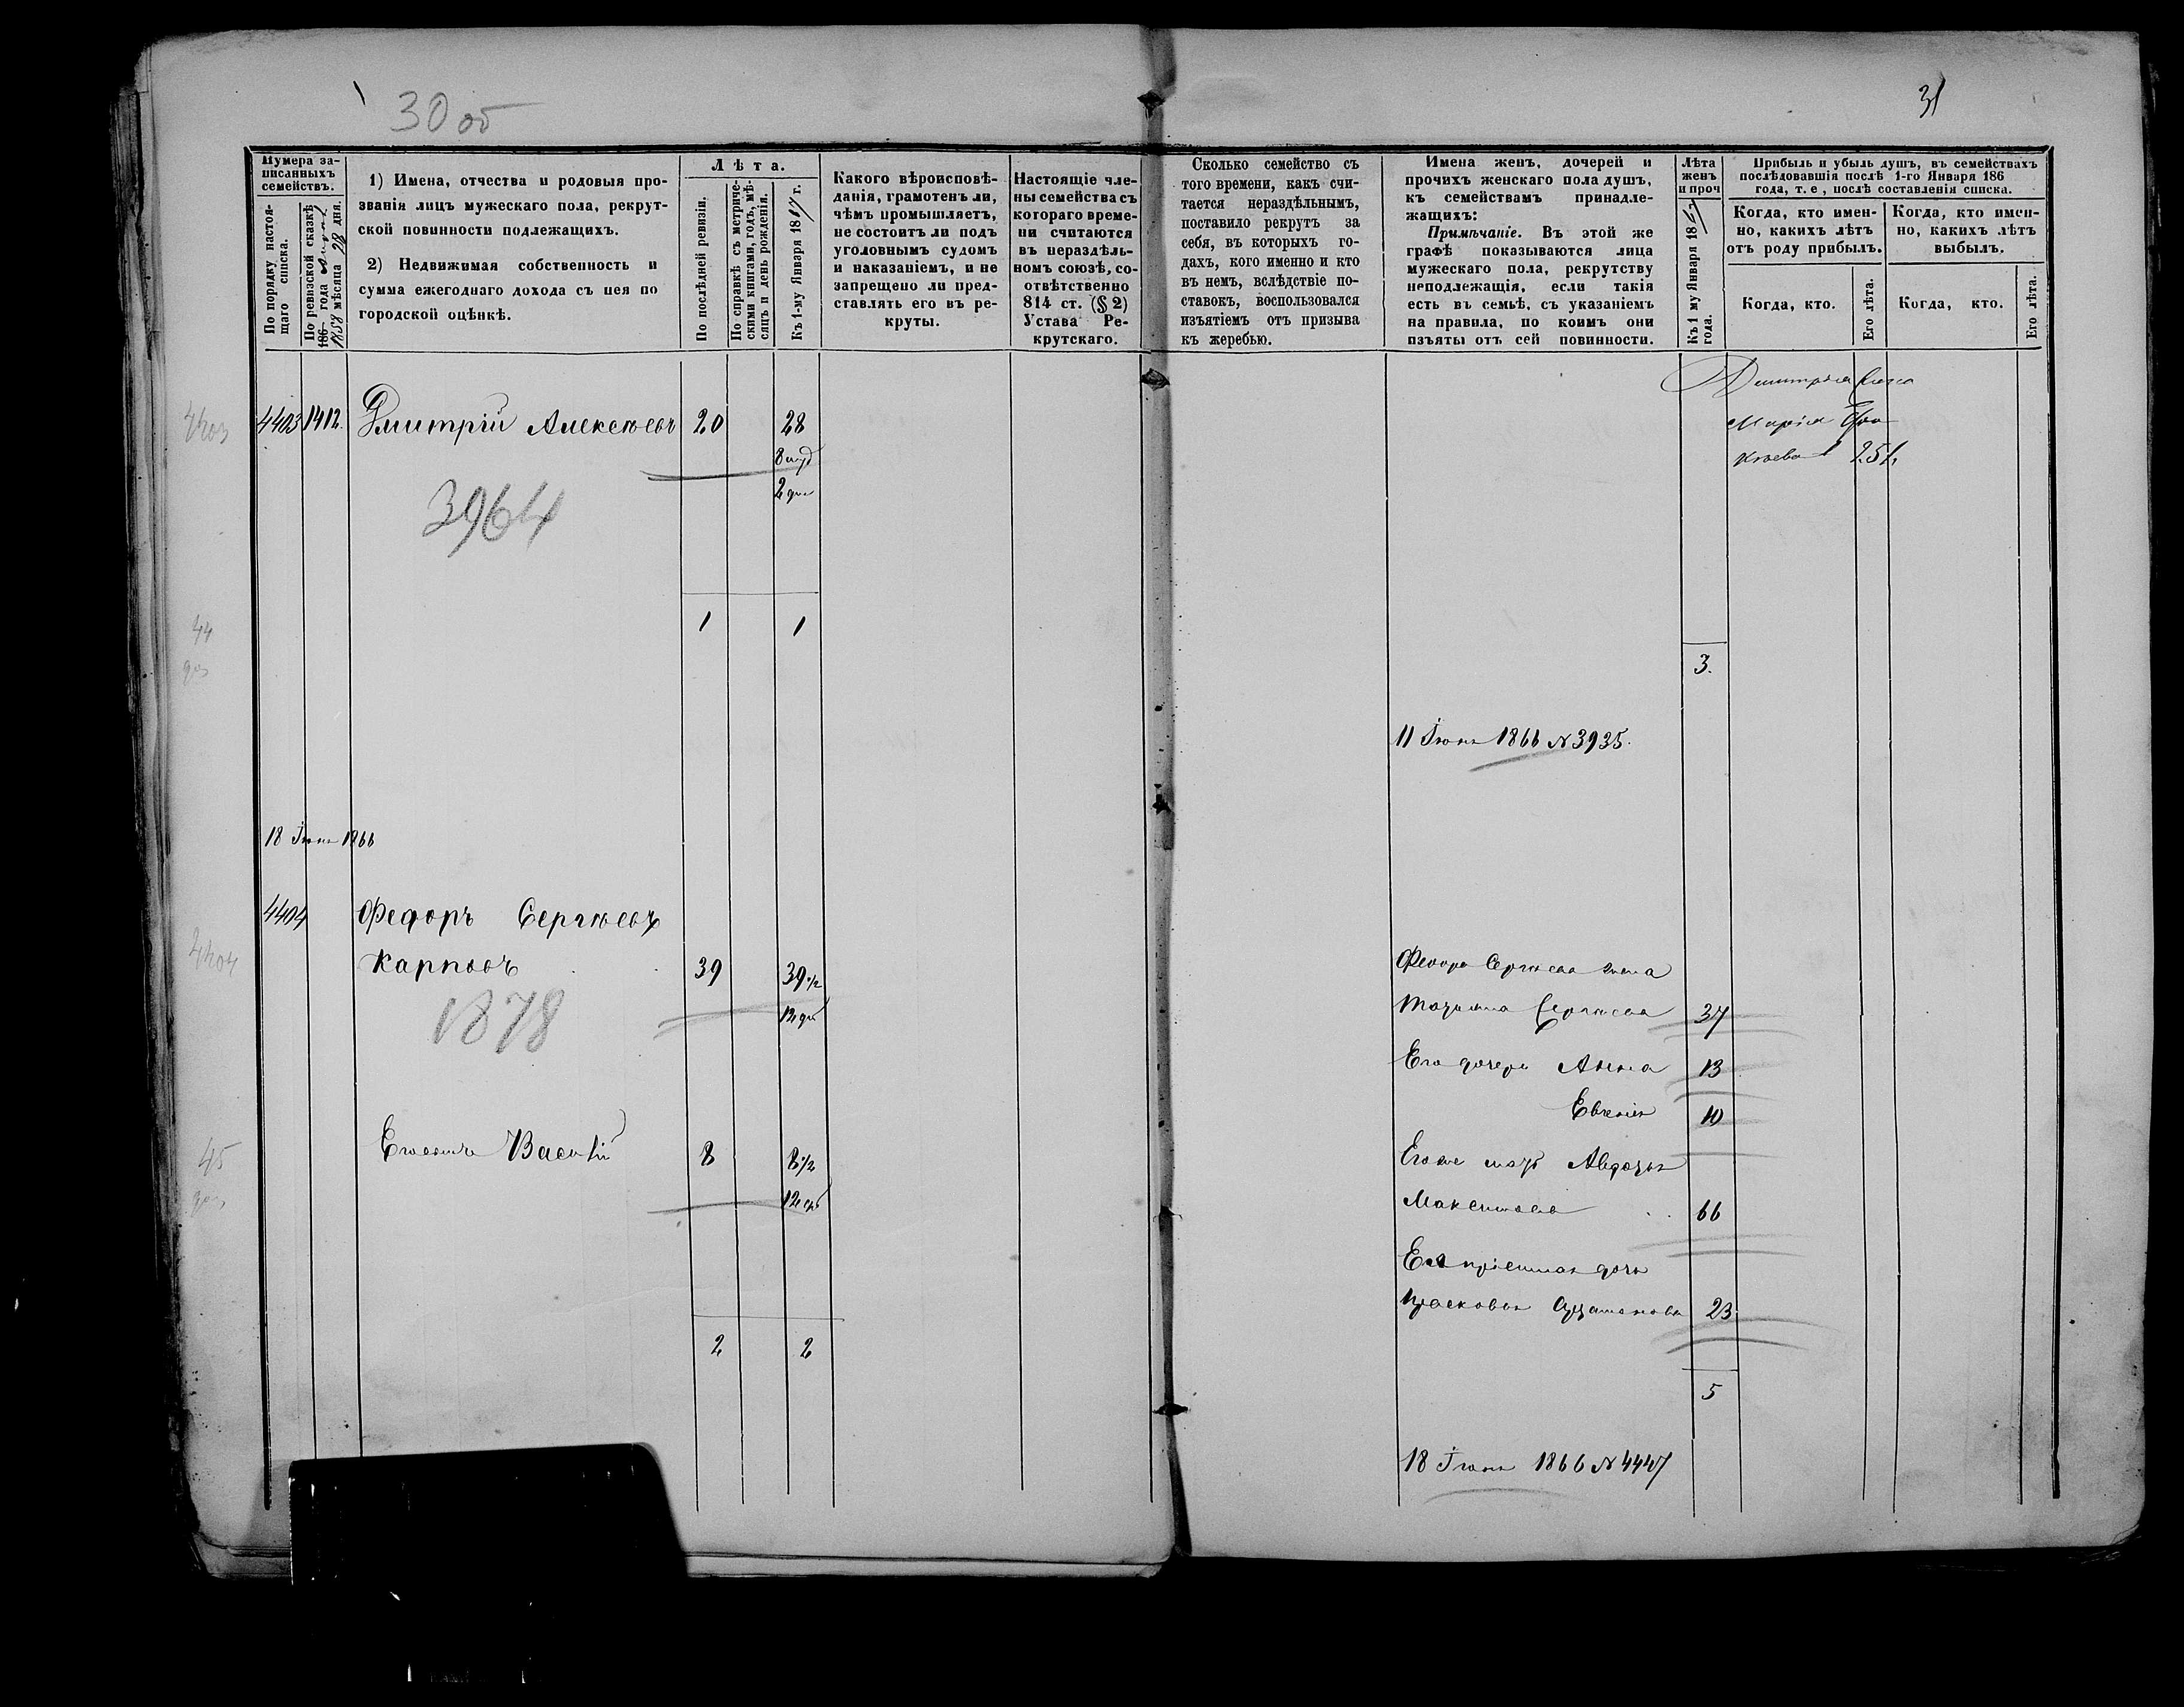 30 об
31
Нумера за-
писанныхъ
семействъ.
По порядку настоя-
щаго списка.
По ревизской сказкѣ
186 года
1858 мѣсяца 28 дня.
1) Имена, отчества и родовыя про-
званія лицъ мужескаго пола, рекрут-
ской повинности подлежащихъ.
2) Недвижимая собственность и
сумма ежегоднаго дохода съ нея по
городской оцѣнкѣ.
Лѣта.
По послѣдней ревизіи.
По справкѣ съ метриче-
скими книгами, годъ, мѣ-
сяцъ и день рожденія.
Къ 1-му Января 1867 г.
Какого вѣроисповѣ-
данія, грамотенъ ли,
чѣмъ промышляетъ,
не состоитъ ли подъ
уголовнымъ судомъ
и наказаніемъ, и не
запрещено ли пред-
ставлять его въ ре-
круты.
Настоящіе чле-
ны семейства съ
котораго време-
ни считаются
въ нераздѣль-
номъ союзѣ, со-
отвѣтственно
814 ст. (§ 2)
Устава Ре-
крутскаго.
Сколько семейство съ
того времени, какъ счи-
тается нераздѣльнымъ,
поставило рекрутъ за
себя, въ которыхъ го-
дахъ, кого именно и кто
въ немъ, вслѣдствіе по-
ставокъ, воспользовался
изъятіемъ отъ призыва
къ жеребью.
Имена женъ, дочерей и
прочихъ женскаго пола душъ,
къ семействамъ принадле-
жащихъ:
Примѣчаніе. Въ этой же
графѣ показываются лица
мужескаго пола, рекрутству
неподлежащія, если такія
есть въ семьѣ, съ указаніемъ
на правила, по коимъ они
изъяты отъ сей повинности.
Лѣта
женъ
и проч
Къ 1 му Января 186
года.
Прибыль и убыль душъ, въ семействахъ
послѣдовавшія послѣ 1-го Января 186
года, т. е, послѣ составленія списка.
Когда, кто имен-
но, какихъ лѣтъ
отъ роду прибылъ.
Когда, кто имен-
но, какихъ лѣтъ
выбылъ.
Когда, кто.
Его лѣта.
Когда, кто.
Его лѣта.
4403
4403 1412. Дмитрій Алексѣевъ 20 28
3964
1 1
44
Дмитрія жена
Марія
25
3.
11 Іюня 1866 N 3935.
18 Іюня 1866
4404 Федоръ Сергѣевъ
4404
Карповъ 39 39 1/2
1878
Его сынъ Василій 8 8 1/2
45
2 2
Федора Сергѣева жена
Татьяна Сергѣева 37
Его дочери Анна 13
Евгенія 10
Его же мать Авдотья
Максимова 66
Ея пріемная дочь
Прасковья 23
5
18 Іюня 1866 N 4447